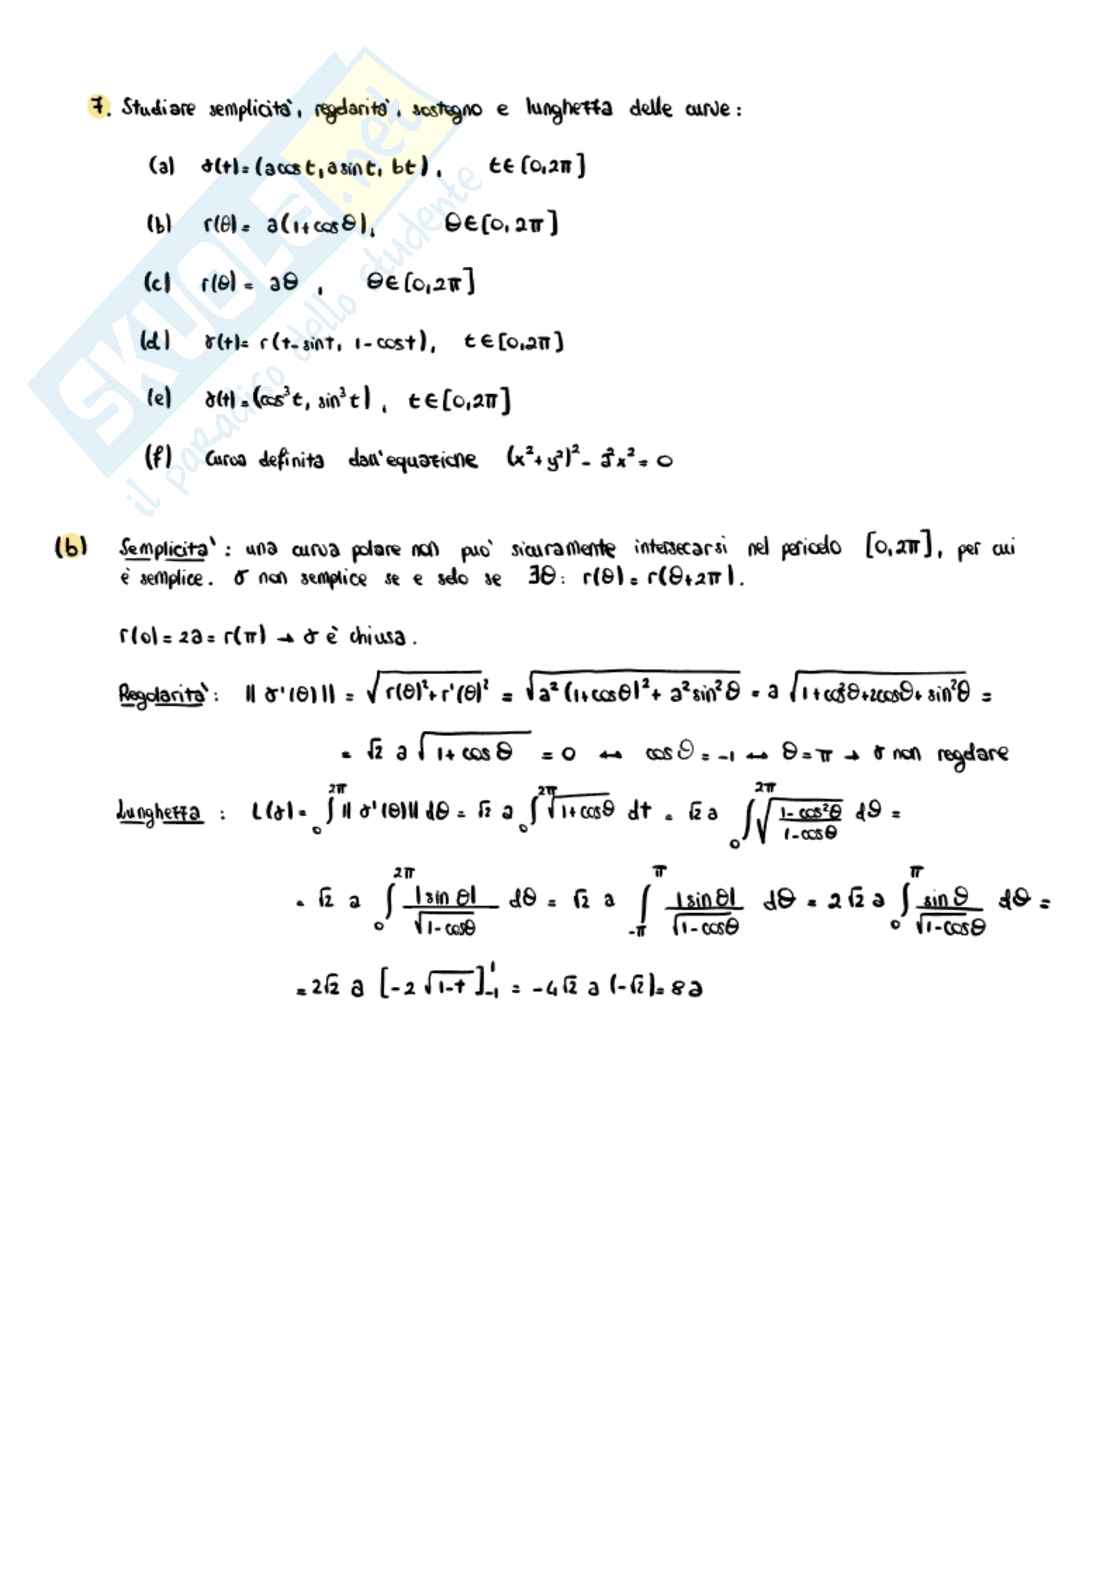 SKUOLA.net
il paradiso dello studente
7. Studiare semplicità, regolarità, sostegno e lunghezza delle curve:
(a) γ(t)=(acost, asint, bt), t∈[0,2π]
(b) r(θ)= a(1+cosθ), θ∈[0,2π]
(c) r(θ)= aθ, θ∈[0,2π]
(d) γ(t)= r(t-sint, 1-cost), t∈[0,2π]
(e) γ(t)=(cos³t, sin³t), t∈[0,2π]
(f) Curva definita dall'equazione (x²+y²)²- J²x²=0
(b) Semplicità: una curva polare non può sicuramente intersecarsi nel periodo [0,2π], per cui
è semplice. γ non semplice se e solo se ∃θ: r(θ)=r(θ+2π).
r(0)=2a=r(π) → γ è chiusa.
Regolarità: ||γ'(θ)|| = √(r(θ)²+r'(θ)²) = √(a²(1+cosθ)²+a²sin²θ) = a√(1+cos²θ+2cosθ+sin²θ) =
= √2 a √(1+cosθ) = 0 ↔ cosθ=-1 ↔ θ=π → γ non regolare
Lunghezza: L(γ)= ∫₀^2π ||γ'(θ)|| dθ = √2 a ∫₀^2π √(1+cosθ) dt = √2 a ∫₀^2π √((1-cos²θ)/(1-cosθ)) dθ =
= √2 a ∫₀^2π |sinθ|/√(1-cosθ) dθ = √2 a ∫_-π^π |sinθ|/√(1-cosθ) dθ = 2√2 a ∫₀^π sinθ/√(1-cosθ) dθ =
= 2√2 a [-2√(1-t)]_-1^1 = -4√2 a (-√2)= 8a